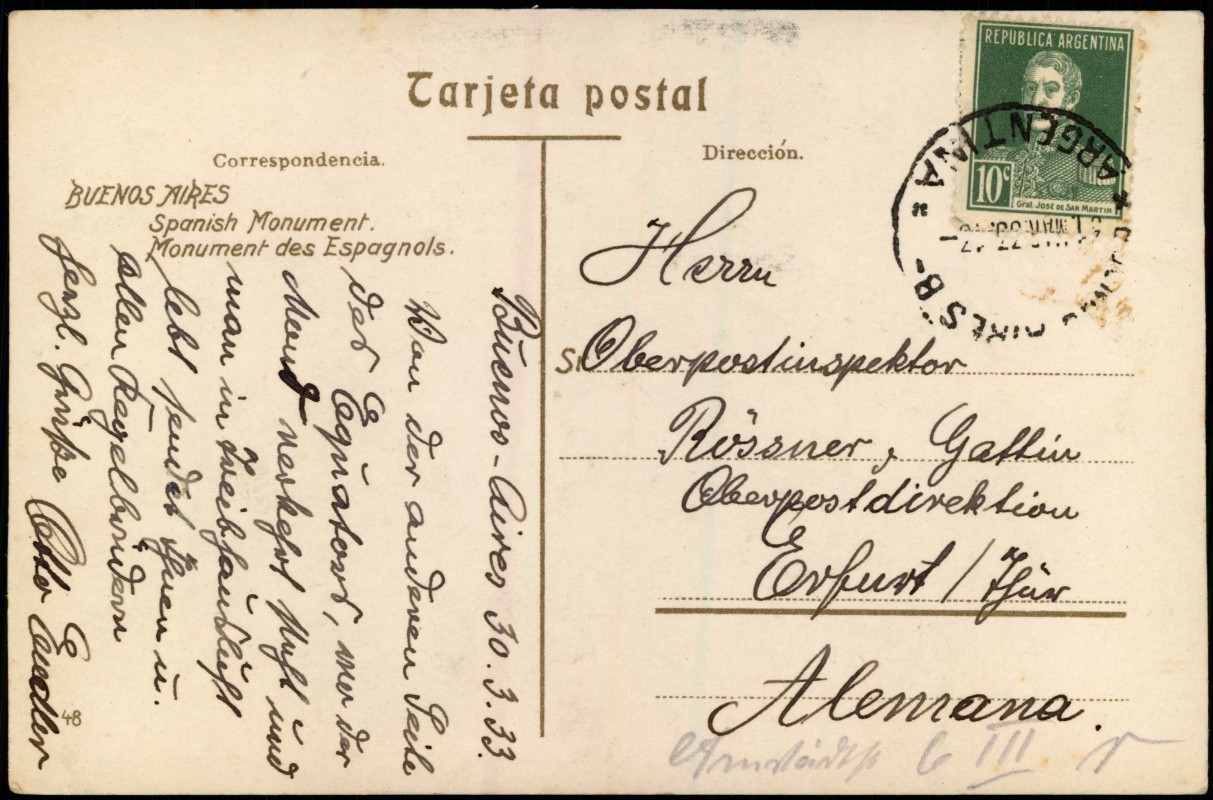 Tarjeta postal
Correspondencia.
Dirección.
BUENOS AIRES
Spanish Monument.
Monument des Espagnols.
Buenos-Aires 30.3.33.
Von der anderen Seite
des Equators, wo der
Mond verkehrt steht und
man in Treibhausluft
lebt sendet Ihnen u.
allen Kegelbrüdern
herzl. Grüße Otto
48
REPUBLICA ARGENTINA
10c
Gral. José de San Martin
ARGENTINA
Herrn
Oberpostinspektor
Rössner, Gattin
Oberpostdirektion
Erfurt / Thür
Alemana.
6 III